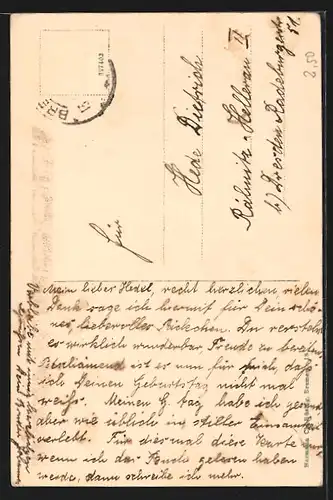 für
Hede Dietrich
Rähnitz-Hellerau II
b/ Dresden Radeburgerstr
51.
2,50
377403
Mein lieber Hedel, recht herzlichen, vielen
Dank sage ich hiermit für Dein schö-
nes, liebevolles Päckchen. Du verstehst
es wirklich wunderbar, Freude zu bereiten
ist es nun für mich, daß
ich Deinen Geburtstag nicht mal
weiß. Meinen G. tag habe ich
aber wie üblich in stiller Einsamkeit
verlebt. Für diesmal diese Karte
wenn ich das Buch gelesen haben
werde, dann schreibe ich mehr.